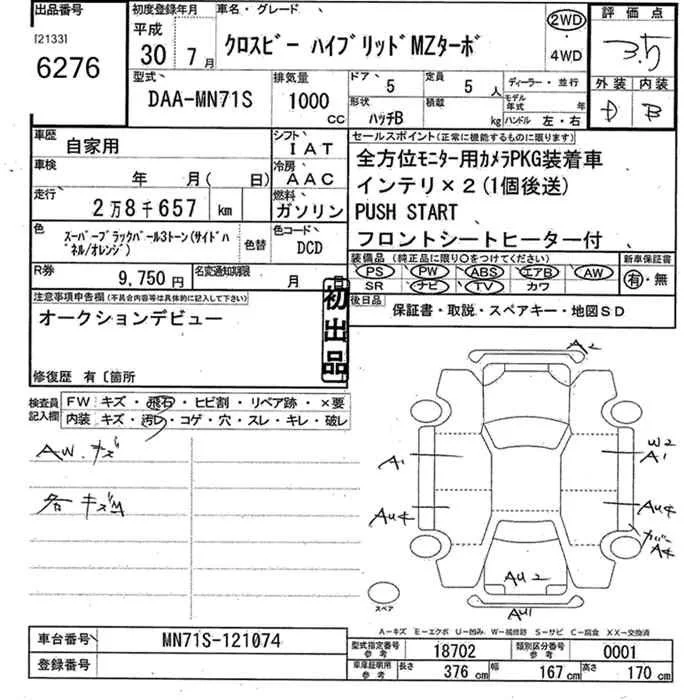 出品番号
[2133]
6276
初度登録年月
平成
30年 7月
車名・グレード
クロスビー ハイブリッドMZターボ
2WD
・
4WD
評価点
3.5
外装 内装
D B
型式
DAA-MN71S
排気量
1000
CC
ドア 5 定員 5人
形状 ハッチB 積載 kg
ディーラー・並行
モデル年式 年
ハンドル 左・右
車歴 自家用
シフト IAT
車検 年 月( 日)
冷房 AAC
走行 2万8千657 km
燃料 ガソリン
色 スーパーブラックパール3トーン(サイドパ
ネル/オレンジ)
色替
色コード DCD
R券 9,750円
名変通知期限 月
セールスポイント(正常に機能するものに限ります)
全方位モニター用カメラPKG装着車
インテリ×2(1個後送)
PUSH START
フロントシートヒーター付
装備品(純正品に限り〇をつけてください)
PS PW ABS エアB AW
SR ナビ TV カワ
新車保証書
有・無
後日品
保証書・取説・スペアキー・地図SD
注意事項申告欄(不具合内容等は具体的に記入して下さい)
オークションデビュー
初出品
修復歴 有〔箇所
検査員記入欄
FW キズ・飛石・ヒビ割・リペア跡・×要
内装 キズ・汚レ・コゲ・穴・スレ・キレ・破レ
AW.キズ
各キズM
A2
A1
W2
A1
AU4
AU4
ガバ
A4
AU2
AU1
スペア
A−キズ E−エクボ U−凹み W−補修跡 S−サビ C−腐食 XX−交換済
車台番号 MN71S-121074
登録番号
型式指定番号 参考 18702
類別区分番号 参考 0001
車庫証明用 参考 長さ 376cm 幅 167cm 高さ 170cm